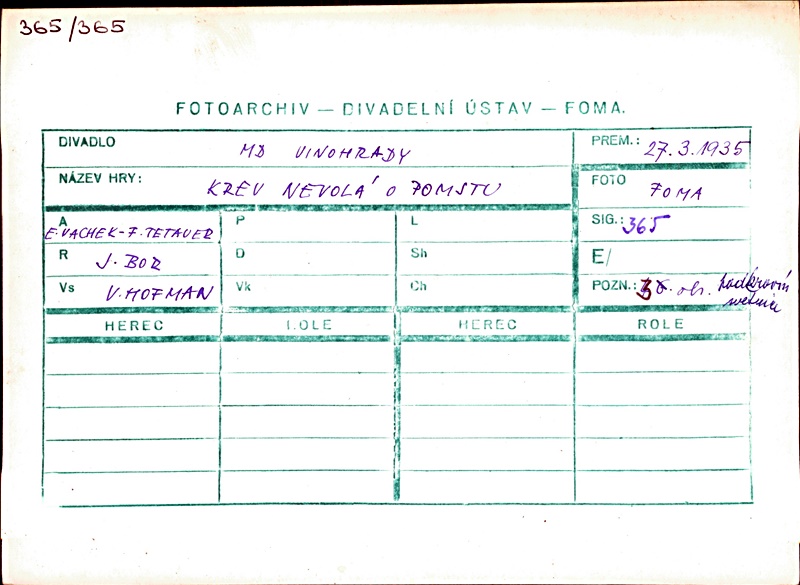 365/365
FOTOARCHIV — DIVADELNÍ ÚSTAV — FOMA.
DIVADLO MD VINOHRADY PREM.: 27.3.1935
NÁZEV HRY: KREV NEVOLÁ O POMSTU FOTO FOMA
A E.VACHEK-F.TETAUER P L SIG.: 365
R J. BOR D Sh E/
Vs V.HOFMAN Vk Ch POZN.: ob.
HEREC ROLE HEREC ROLE